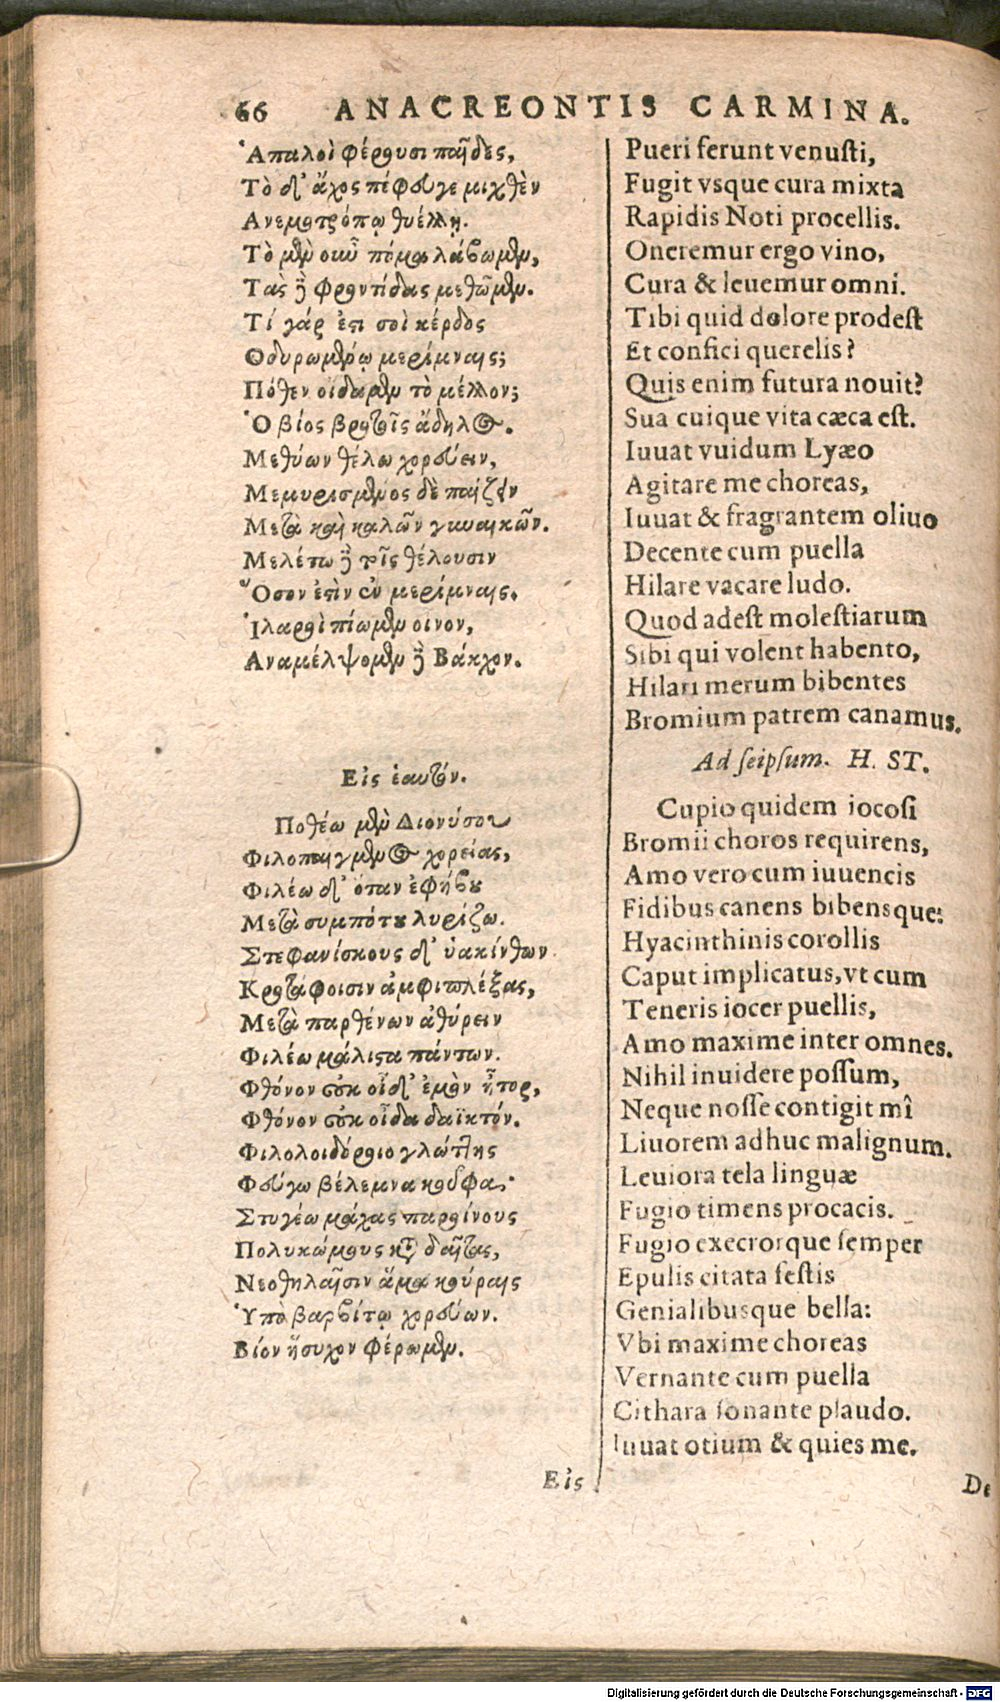 66 ANACREONTIS CARMINA.
Ἁπαλοὶ φέρουσι παῖδες,
Τὸ δ' ἄχος πέφευγε μιχθὲν
Ανεμοτρόπῳ θυέλλῃ.
Τὸ μὲν οὖν πόμα λάβωμεν,
Τὰς δὲ φροντίδας μεθῶμεν.
Τί γάρ ἐστι σοὶ κέρδος
Οδυρωμένῳ μερίμναις;
Πόθεν οἴδαμεν τὸ μέλλον;
Ὁ βίος βροτοῖς ἄδηλος.
Μεθύων θέλω χορεύειν,
Μεμυρισμένος δὲ παίζειν
Μετὰ καὶ καλῶν γυναικῶν.
Μελέτω δὲ τοῖς θέλουσιν
Ὅσον ἐστὶν ἐν μερίμναις.
Ἱλαροὶ πίωμεν οινον,
Αναμέλψομεν δὲ Βάκχον.
Εἰς ἑαυτόν.
Ποθέω μὲν Διονύσου
Φιλοπαίγμενος χορείας,
Φιλέω δ' ὁπαν ἐφήβου
Μετὰ συμπότου λυρίζω.
Στεφανίσκους δ' ὑακίνθων
Κροτάφοισιν ἀμφιπλέξας,
Μετὰ παρθένων ἀθύρειν
Φιλέω μάλιστα πάντων.
Φθόνον οὐκ οἶδ' ἐμὸν ἦτορ,
Φθόνον οὐκ οἶδα δαϊκτόν.
Φιλολοιδόροιο γλώττης
Φεύγω βέλεμνα κοῦφα·
Στυγέω μάχας παροίνους
Πολυκώμους κατὰ δαῖτας,
Νεοθηλαῖσιν ἅμα κούραις
Ὑπὸ βαρβίτῳ χορεύων.
Βίον ἥσυχον φέρωμεν.
Εἰς
Pueri ferunt venusti,
Fugit vsque cura mixta
Rapidis Noti procellis.
Oneremur ergo vino,
Cura & leuemur omni.
Tibi quid dolore prodest
Et confici querelis?
Quis enim futura nouit?
Sua cuique vita cæca est.
Iuuat vuidum Lyæo
Agitare me choreas,
Iuuat & fragrantem oliuo
Decente cum puella
Hilare vacare ludo.
Quod adest molestiarum
Sibi qui volent habento,
Hilari merum bibentes
Bromium patrem canamus.
Ad seipsum. H. ST.
Cupio quidem iocosi
Bromii choros requirens,
Amo vero cum iuuencis
Fidibus canens bibensque:
Hyacinthinis corollis
Caput implicatus, vt cum
Teneris iocer puellis,
Amo maxime inter omnes.
Nihil inuidere possum,
Neque nosse contigit mî
Liuorem adhuc malignum.
Leuiora tela linguæ
Fugio timens procacis.
Fugio execrorque semper
Epulis citata festis
Genialibusque bella:
Vbi maxime choreas
Vernante cum puella
Cithara sonante plaudo.
Iuuat otium & quies me.
De
Digitalisierung gefördert durch die Deutsche Forschungsgemeinschaft - DFG